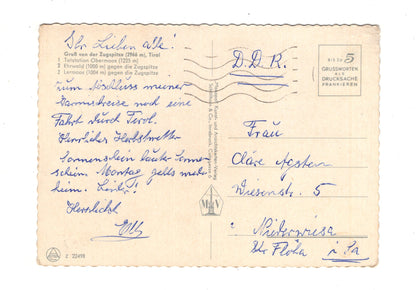 Ihr Lieben alle!
Gruß von der Zugspitze (2966 m), Tirol
1 Talstation Obermoos (1225 m)
2 Ehrwald (1000 m) gegen die Zugspitze
3 Lermoos (1004 m) gegen die Zugspitze
zum Abschluss meiner
noch eine
Fahrt durch Tirol.
Herrliches Herbstwetter
Sonnenschein heute
schein. Montag gehts wieder
heim.
Herzlichst
Elly
C 22498
D.D.R.
BIS ZU 5
GRUSSWORTEN
ALS
DRUCKSACHE
FRANKIEREN
Frau
Cläre Agsten
Wiesenstr. 5
Niederwiesa
Kr. Flöha i. Sa